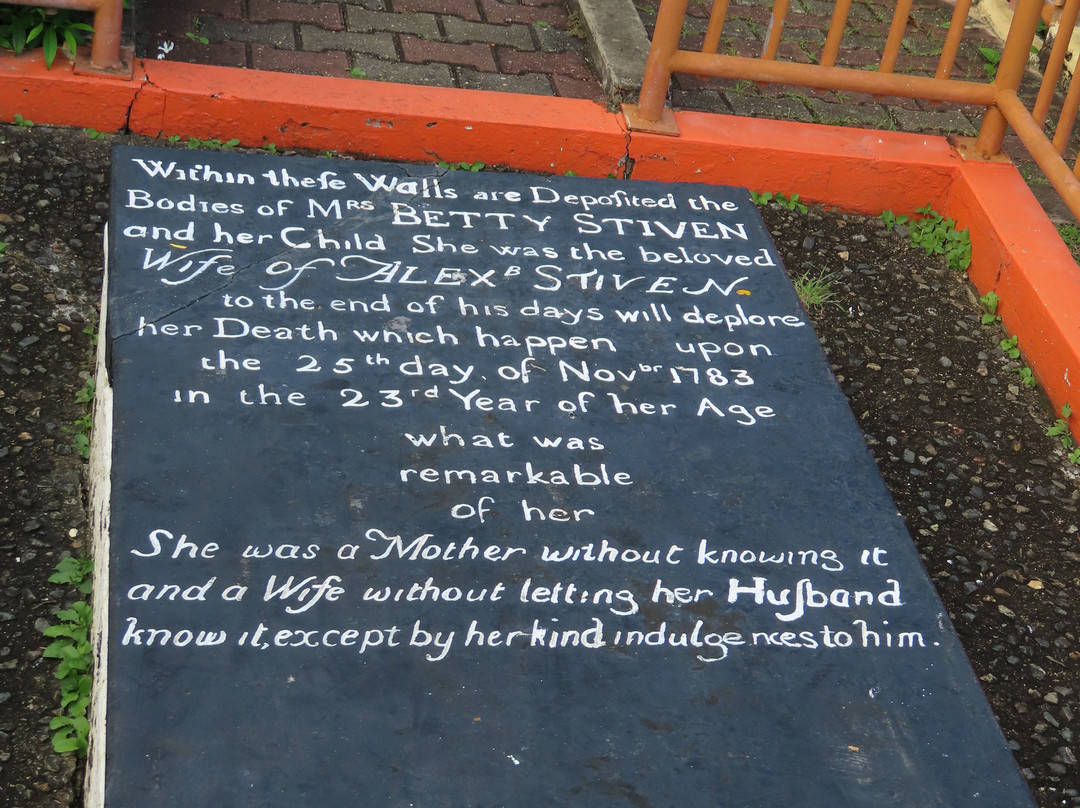 Within theſe Walls are Depoſited the
Bodies of Mrs BETTY STIVEN
and her Child She was the beloved
Wife of ALEXB STIVEN.
to the end of his days will deplore
her Death which happen upon
the 25th day of Novbr 1783
in the 23rd Year of her Age
what was
remarkable
of her
She was a Mother without knowing it
and a Wife without letting her Huſband
know it, except by her kind indulgences to him.